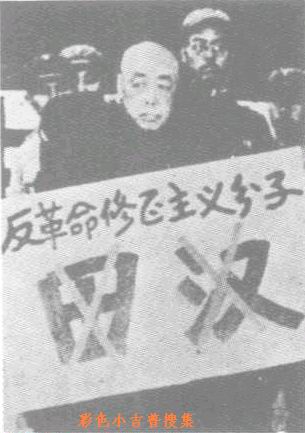 反革命修正主义分子
田汉
彩色小古董搜集